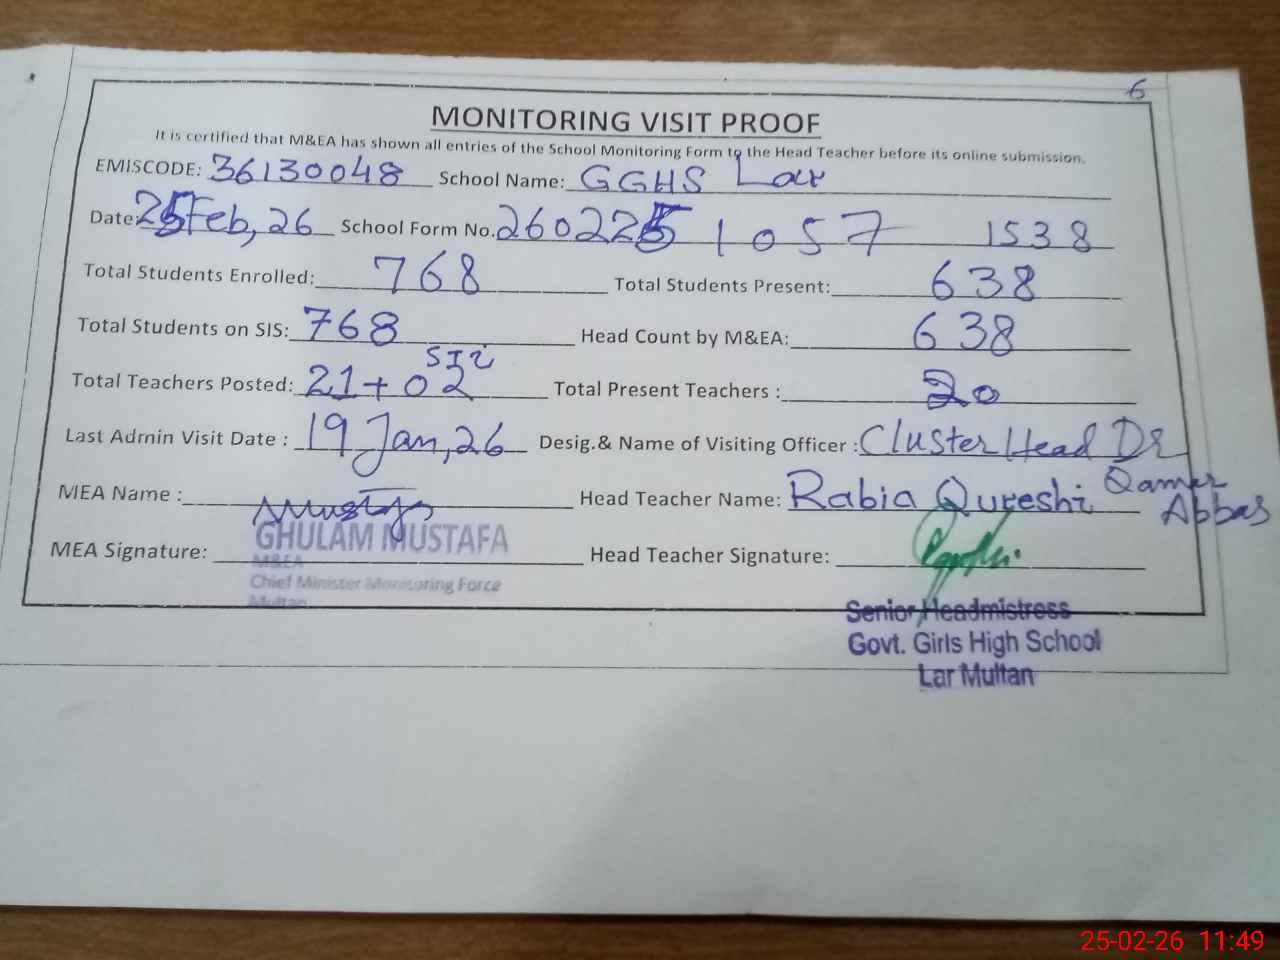 6
MONITORING VISIT PROOF
It is certified that M&EA has shown all entries of the School Monitoring Form to the Head Teacher before its online submission.
EMISCODE: 36130048 School Name: GGHS Lar
Date: 25 Feb, 26 School Form No. 260225 1057 1538
Total Students Enrolled: 768 Total Students Present: 638
Total Students on SIS: 768 Head Count by M&EA: 638
Total Teachers Posted: 21+02 Total Present Teachers : 20
Last Admin Visit Date : 19 Jan, 26 Desig.& Name of Visiting Officer : Cluster Head Dr
Qamer Abbas
MEA Name : Head Teacher Name: Rabia Qureshi
GHULAM MUSTAFA
MEA Signature: Head Teacher Signature:
M&EA
Chief Minister Monitoring Force
Multan
Senior Headmistress
Govt. Girls High School
Lar Multan
25-02-26 11:49